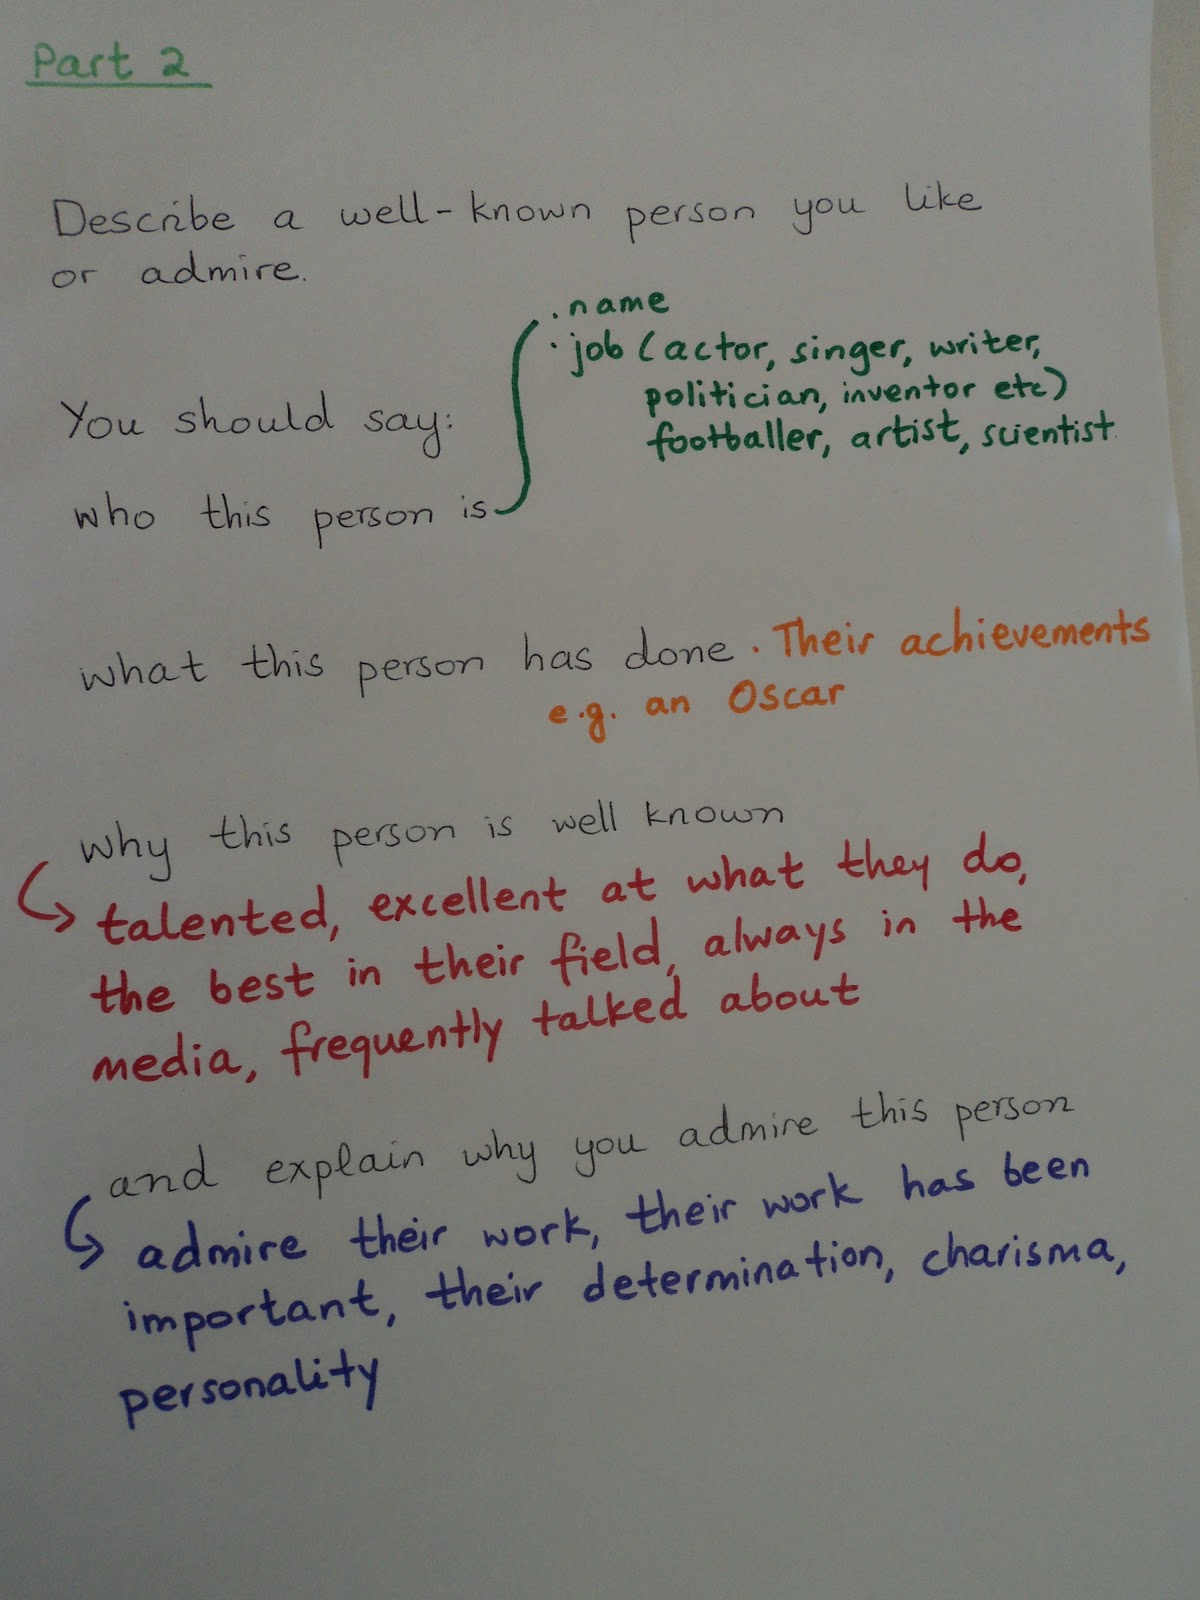 Part 2
Describe a well-known person you like
or admire.
You should say:
who this person is
. name
. job (actor, singer, writer,
politician, inventor etc)
footballer, artist, scientist.
what this person has done . Their achievements
e.g. an Oscar
why this person is well known
talented, excellent at what they do,
the best in their field, always in the
media, frequently talked about
and explain why you admire this person
admire their work, their work has been
important, their determination, charisma,
personality